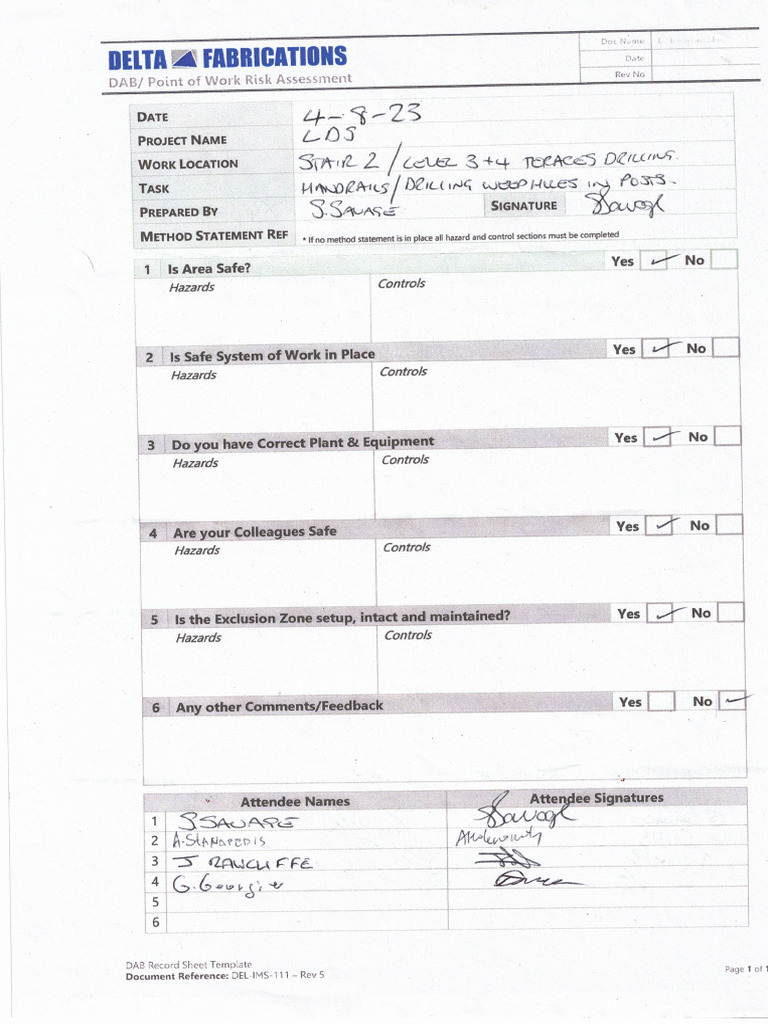 DELTA FABRICATIONS
DAB/ Point of Work Risk Assessment
Doc Name
Date
Rev No
DATE 4-8-23
PROJECT NAME LDS
WORK LOCATION STAIR 2 / LEVEL 3+4 TERACES DRILLING.
TASK HANDRAILS/DRILLING WEEPHOLES IN POSTS.
PREPARED BY S.SAVAGE SIGNATURE SSavage
METHOD STATEMENT REF * If no method statement is in place all hazard and control sections must be completed
1 Is Area Safe? Yes ✓ No
Hazards Controls
2 Is Safe System of Work in Place Yes ✓ No
Hazards Controls
3 Do you have Correct Plant & Equipment Yes ✓ No
Hazards Controls
4 Are your Colleagues Safe Yes ✓ No
Hazards Controls
5 Is the Exclusion Zone setup, intact and maintained? Yes ✓ No
Hazards Controls
6 Any other Comments/Feedback Yes No ✓
Attendee Names Attendee Signatures
1 S.SAVAGE SSavage
2
3 J RAWCLIFFE
4 G.Georgiev
5
6
DAB Record Sheet Template
Document Reference: DEL-IMS-111 – Rev 5
Page 1 of 1